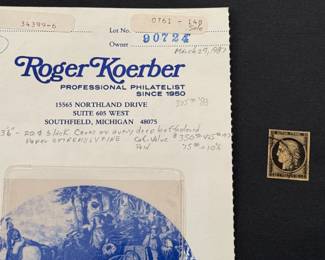 34399-6
Lot No.
0761-148
Sale
Owner
90724
March 29, 1987
Roger Koerber
PROFESSIONAL PHILATELIST
SINCE 1950
15565 NORTHLAND DRIVE
SUITE 605 WEST
SOUTHFIELD, MICHIGAN 48075
Black on
deep
Paper EXTREMELY FINE Cat. Value
75 + 10%